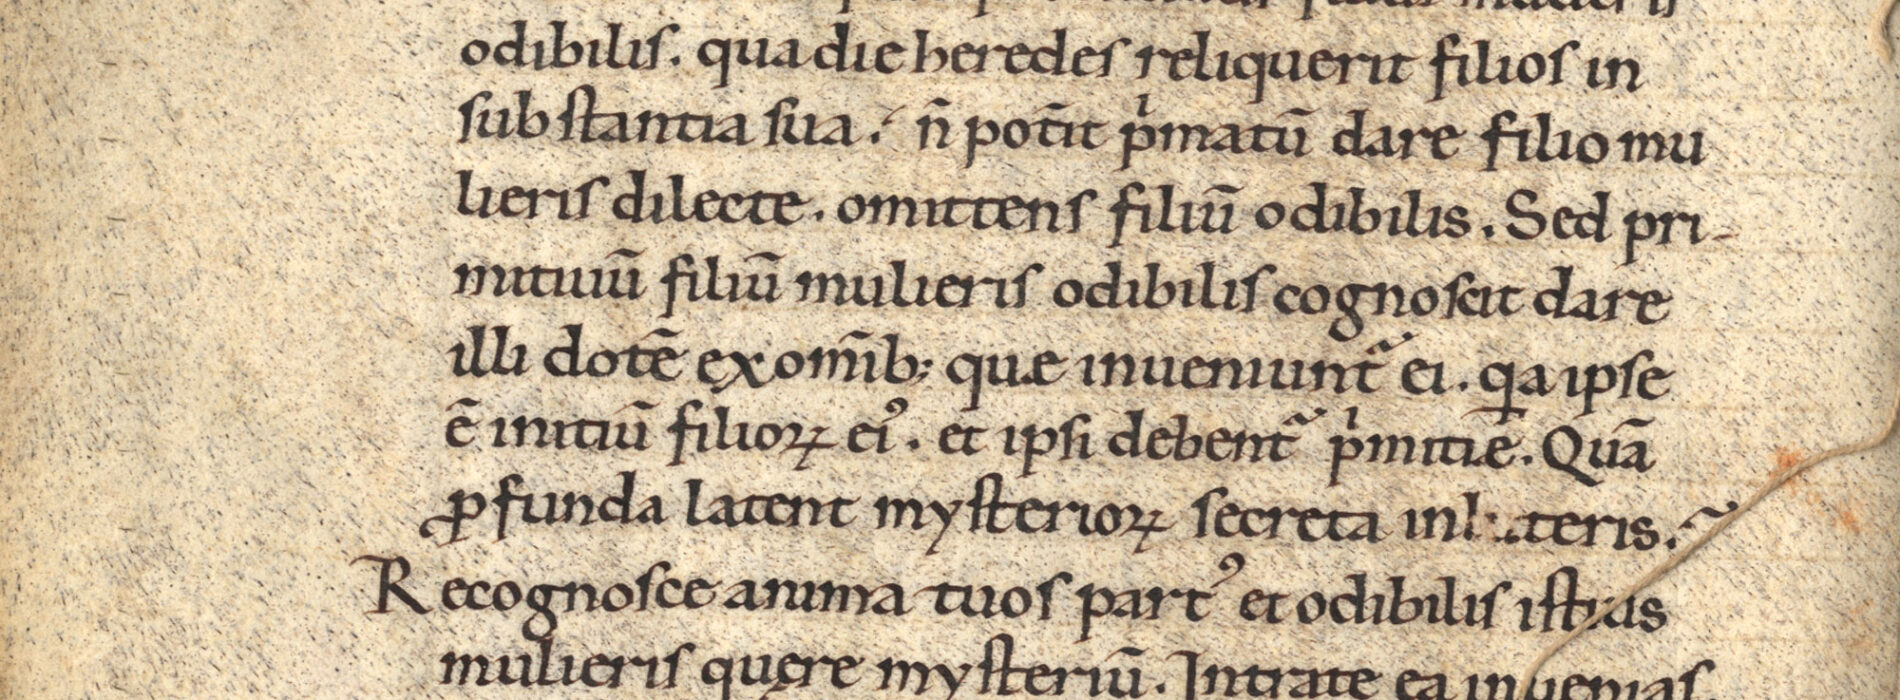 odibilis. qua die heredes reliquerit filios in
substantia sua. n̄ pot̄it pͥmatū dare filio mu
lieris dilecte. omittens filiū odibilis. Sed pri-
mitiuū filiū mulieris odibilis cognoscit dare
illi dotē ex om̄ib; quæ inueniunt᷑ ei. qꝛa ipse
ē initiū filioꝝ ei᾽. et ipsi debent᷑ pͥmitiæ. Quā
ꝓfunda latent mysterioꝝ secreta in teris.
Recognosce anima tuos part᾽ et odibilis istius
mulieris quęre mysteriū. Intrate ea inuenias